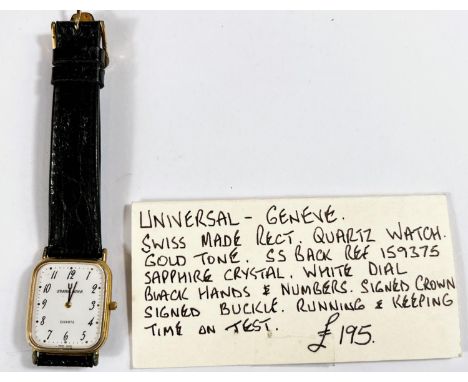 12
11
1
10
2
9
3
8
4
7
5
6
QUARTZ
UNIVERSAL - GENEVE.
SWISS MADE RECT. QUARTZ WATCH.
GOLD TONE. SS BACK REF 159375
SAPPHIRE CRYSTAL. WHITE DIAL
BLACK HANDS & NUMBERS. SIGNED CROWN
SIGNED BUCKLE. RUNNING & KEEPING
TIME ON TEST. £195.